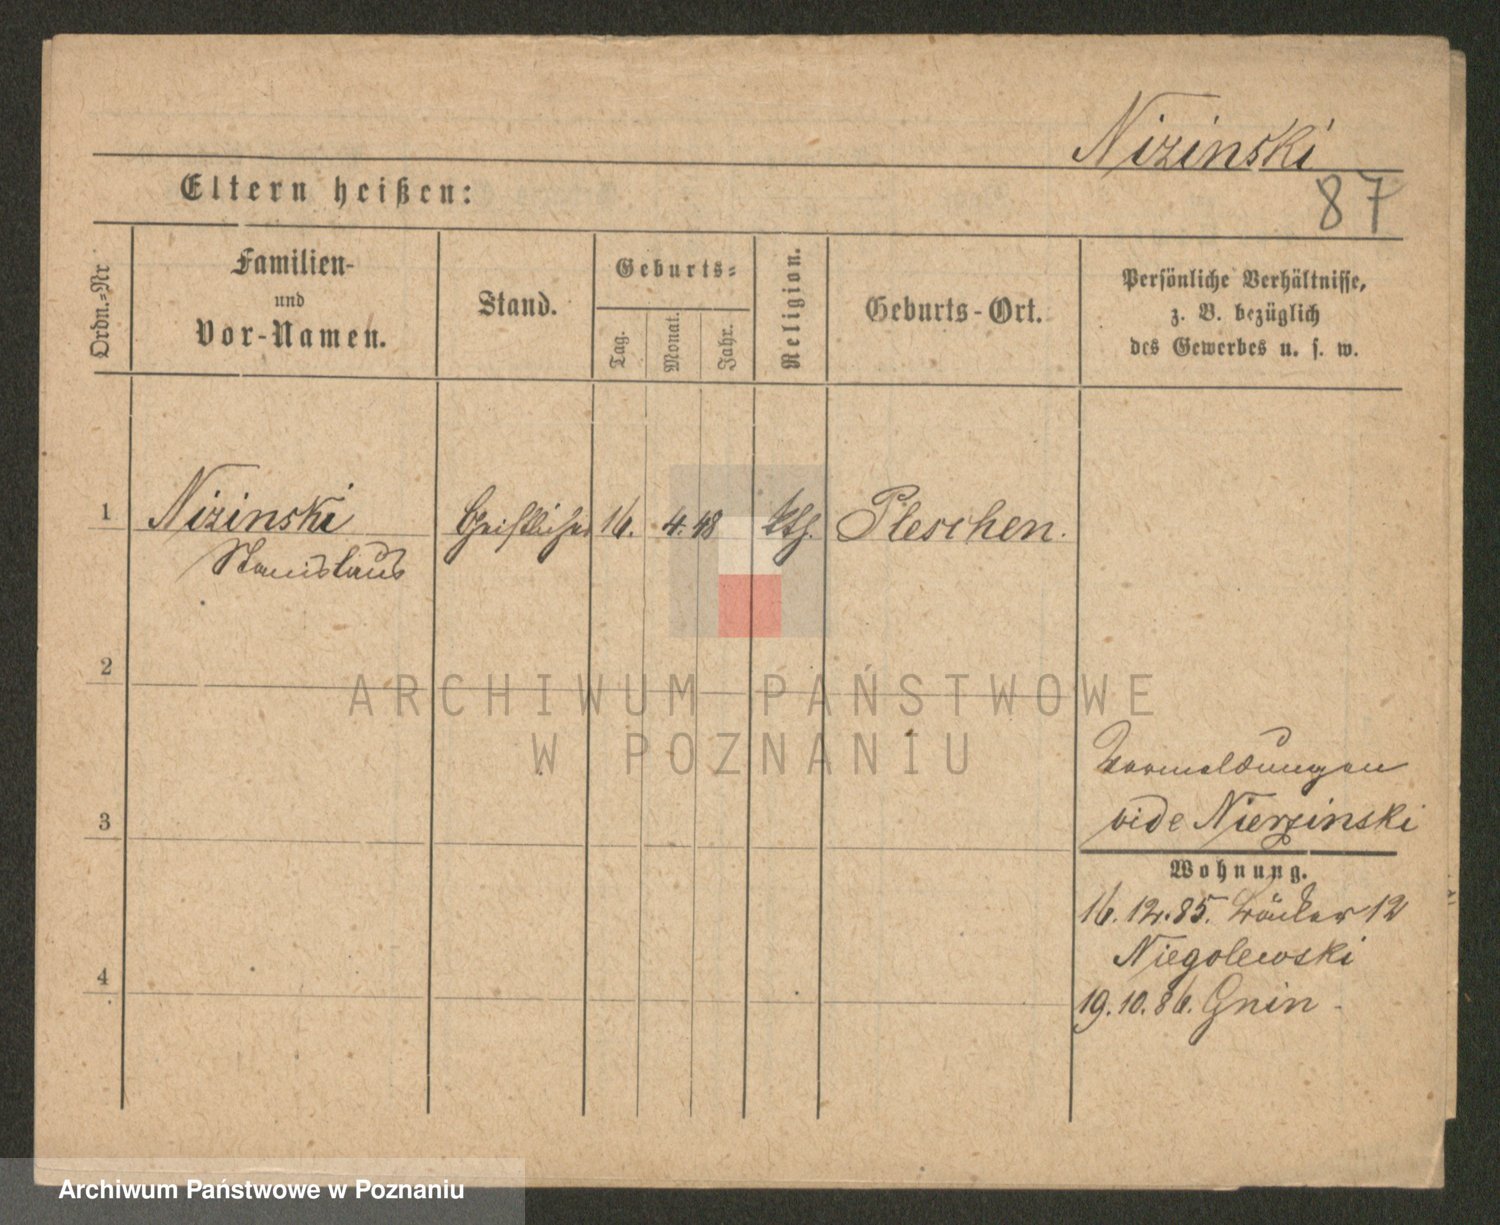 Nizinski
87
Eltern heißen:
Ordn.=Nr
Familien-
und
Vor-Namen.
Stand.
Geburts=
Tag.
Monat.
Jahr.
Religion.
Geburts-Ort.
Persönliche Verhältnisse,
z. B. bezüglich
des Gewerbes u. s. w.
1 Nizinski Geistlicher 16. 4. 48 kth. Pleschen.
Stanislaus
2
ARCHIWUM PAŃSTWOWE
W POZNANIU
vide Nierzinski
3
Wohnung.
16. 12. 85. 12
Niegolewski
4
19. 10. 86. Gnin
Archiwum Państwowe w Poznaniu